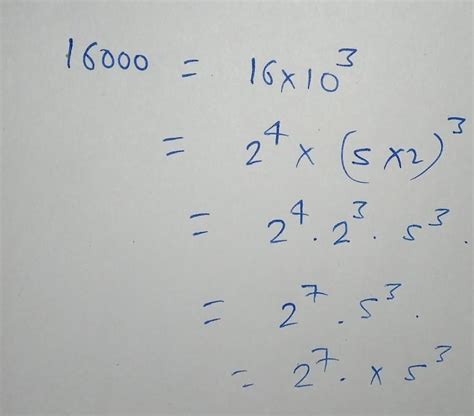 16000 = 16×10³
= 2⁴ × (5×2)³
= 2⁴ . 2³ . 5³.
= 2⁷ . 5³.
= 2⁷ . × 5³